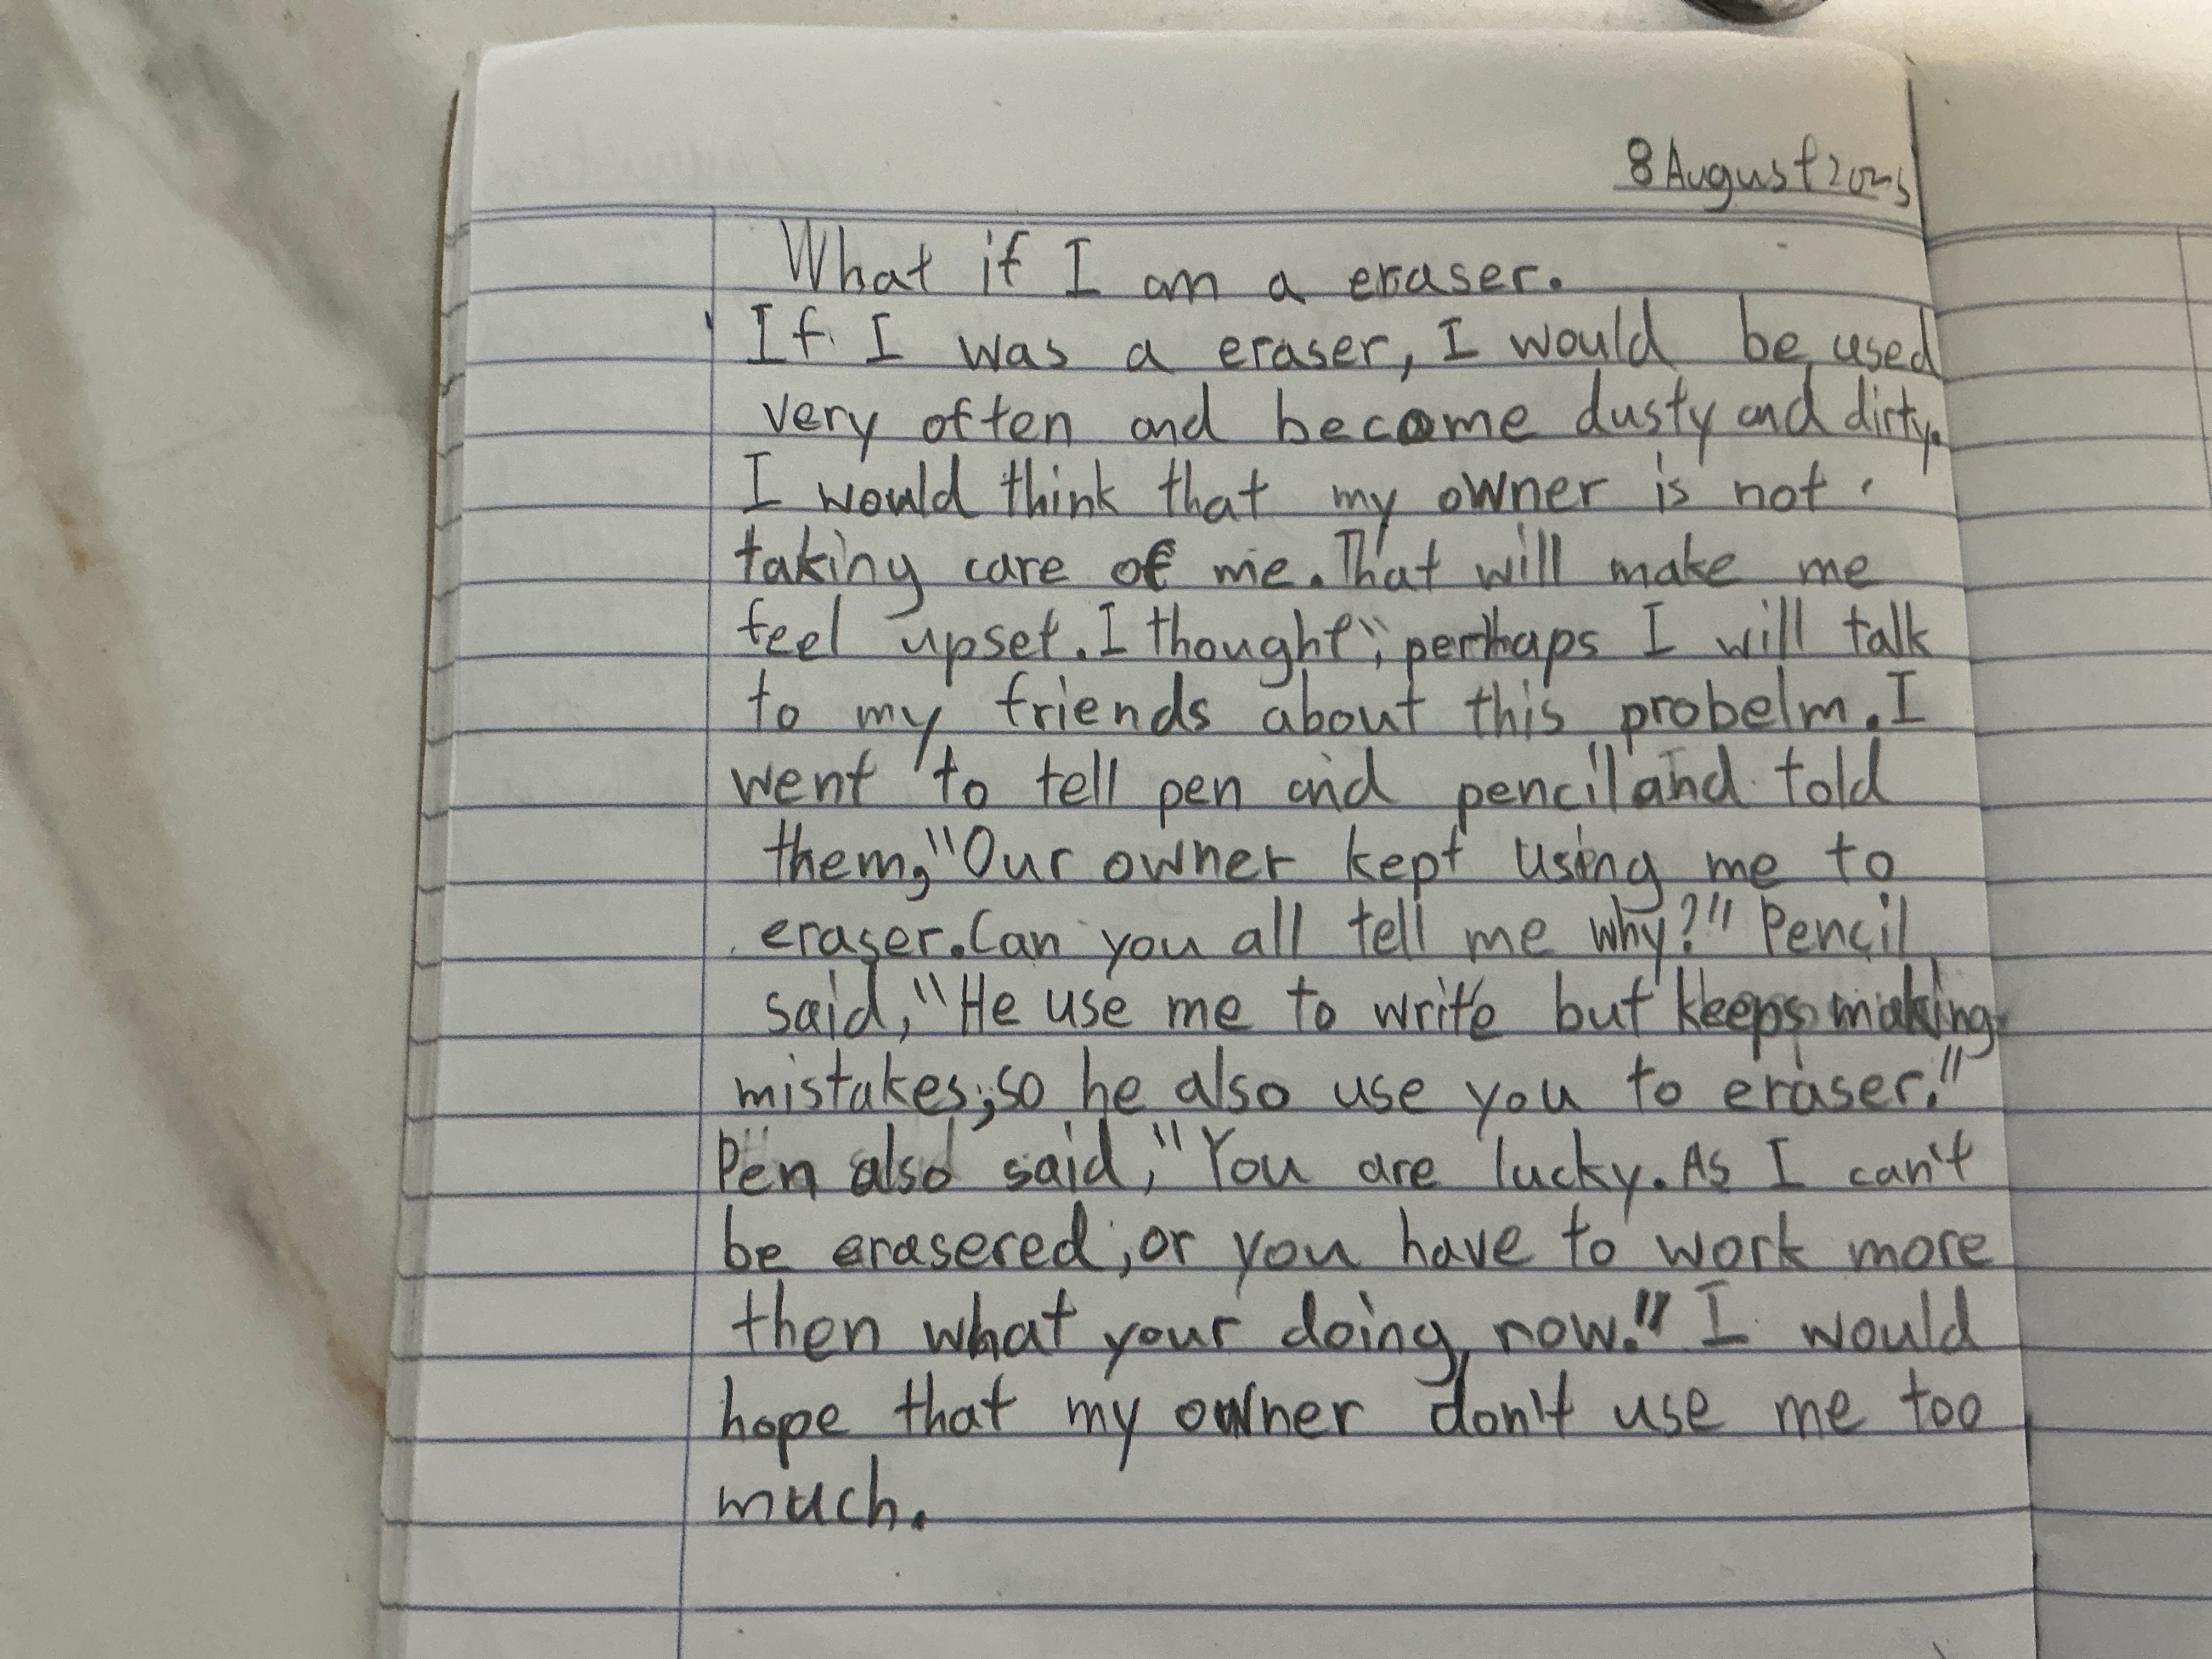 8 August 2025
What if I am a eraser.
If I was a eraser, I would be used
very often and become dusty and dirty.
I would think that my owner is not
taking care of me. That will make me
feel upset. I thought," perhaps I will talk
to my friends about this probelm. I
went to tell pen and pencil and told
them, "Our owner kept using me to
eraser. Can you all tell me why?" Pencil
said, "He use me to write but keeps making
mistakes, so he also use you to eraser."
Pen also said, "You are lucky. As I can't
be erasered, or you have to work more
then what your doing now." I would
hope that my owner don't use me too
much.